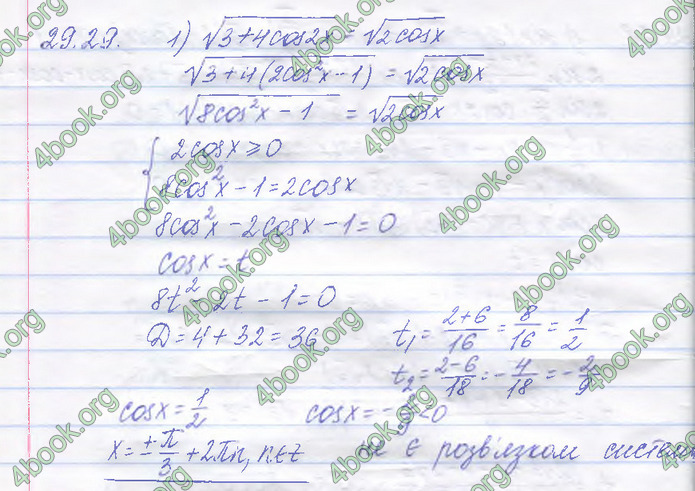 29.29. 1) √(3+4cos2x) = √(2cosx)
√(3+4(2cos²x-1)) = √(2cosx)
√(8cos²x - 1) = √(2cosx)
{ 2cosx ≥ 0
8cos²x - 1 = 2cosx
8cos²x - 2cosx - 1 = 0
cosx = t
8t² - 2t - 1 = 0
D = 4 + 32 = 36 t₁ = (2+6)/16 = 8/16 = 1/2
t₂ = (2-6)/18 = -4/18 = -2/9
cosx = 1/2 cosx = - <0
x = ±π/3 + 2πn, n∈z не є розв'язком систем
4book.org